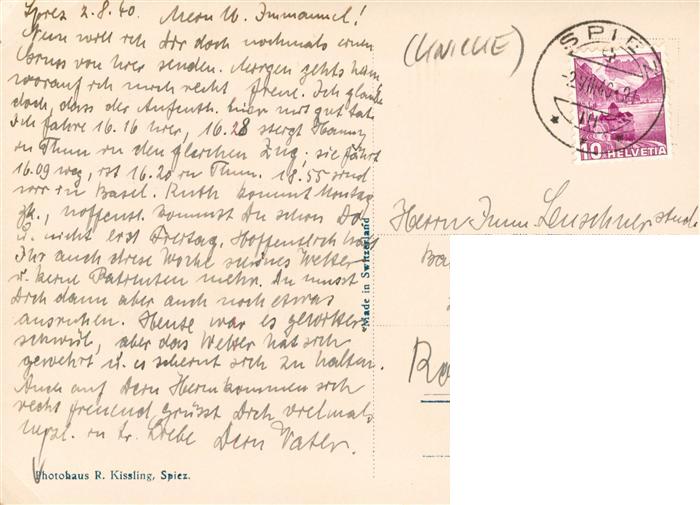 Spiez 2.8.40. Mein lb. Immanuel!
Nun will ich Dir doch nochmals einen
Gruss von hier senden. Morgen gehts heim
worauf ich mich recht freue. Ich glaube
doch, dass der Aufenth. hier mir gut tat.
Ich fahre 16.16 hier, 16.28 steigt Hanny
in Thun in den gleichen Zug; sie fährt
16.09 weg, ist 16.20 in Thun. 18.55 sind
wir in Basel. Ruth kommt Montag
zk., hoffentl. kommst Du schon Do.
u. nicht erst Freitag. Hoffentlich habt
Ihr auch diese Woche schönes Wetter
u. keine Patienten mehr. Du musst
Dich dann aber auch noch etwas
ausruhen. Heute war es gewitter
schwül, aber das Wetter hat sich
gewehrt u. es scheint sich zu halten.
Auch auf Dein Heimkommen sich
recht freuend, grüsst Dich vielmals
herzl. in tr. Liebe Dein Vater.
Photohaus R. Kissling, Spiez.
"Made in Switzerland"
SPIEZ
10 HELVETIA
Herrn Imm. Leuschner stud.
Ba